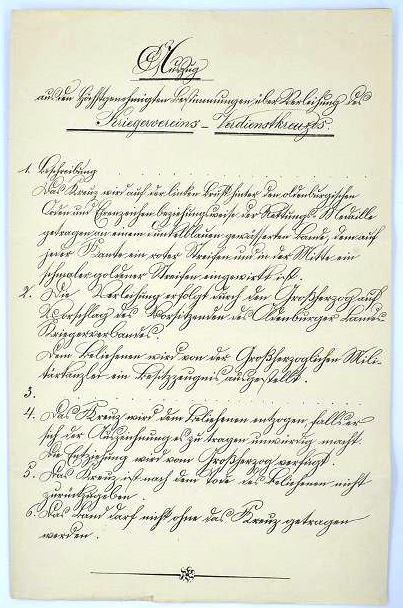 Auszug
aus den Höchstgenehmigten Bestimmungen über Verleihung des
Kriegervereins-Verdienstkreuzes.
1. Beschreibung . . . . . . . . . .
Das Kreuz wird auf der linken Brust hinter den oldenburgischen
Orden und Ehrenzeichen beziehungsweise der Rettungs-Medaille
getragen an einem dunkelblauen gewässerten Bande, dem auf
jeder Kante ein roter Streifen und in der Mitte ein
schmaler goldener Streifen eingewirkt ist.
2. Die Verleihung erfolgt durch den Großherzog auf
Vorschlag des Vorsitzenden des Oldenburger Landes
Kriegerverbandes.
Dem Beliehenen wird von der Großherzoglichen Mili-
tärkanzlei ein Besitzzeugnis ausgestellt.
3. . . . . . . . . . .
4. Das Kreuz wird dem Beliehenen entzogen, falls er
sich der Auszeichnung es zu tragen unwürdig macht.
Die Entziehung wird vom Großherzog verfügt.
5. Das Kreuz ist nach dem Tode des Beliehenen nicht
zurückzugeben.
6. Das Band darf nicht ohne das Kreuz getragen
werden.